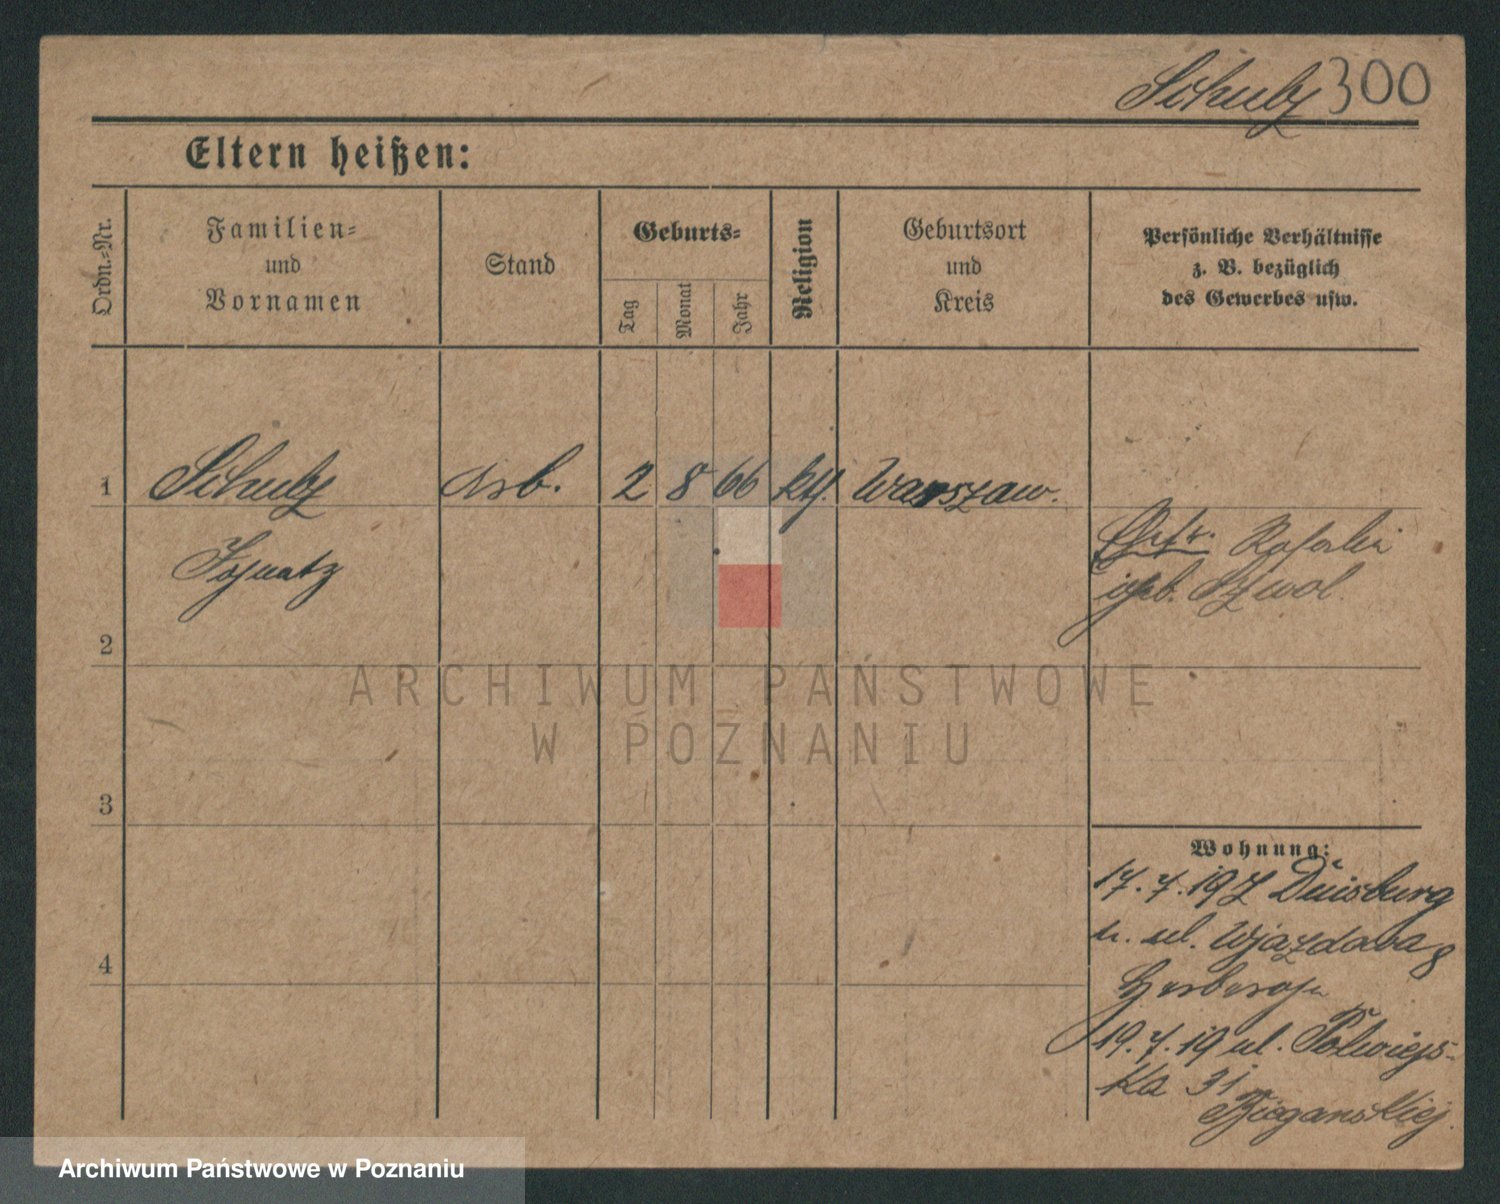 Schulz 300
Eltern heißen:
Ordn.-Nr.
Familien-
und
Vornamen
Stand
Geburts-
Tag
Monat
Jahr
Religion
Geburtsort
und
Kreis
Persönliche Verhältnisse
z. B. bezüglich
des Gewerbes usw.
1 Schulz Arb. 2 8 66 kth. Warszaw.
Ignatz
Ehefr. Rosalie
geb.
2
3
4
ARCHIWUM PAŃSTWOWE
W POZNANIU
Wohnung:
17.7.19 Z Duisburg
n. ul. Wjazdowa 8
19.7.19 ul. Półwiejs-
ka 31
Archiwum Państwowe w Poznaniu